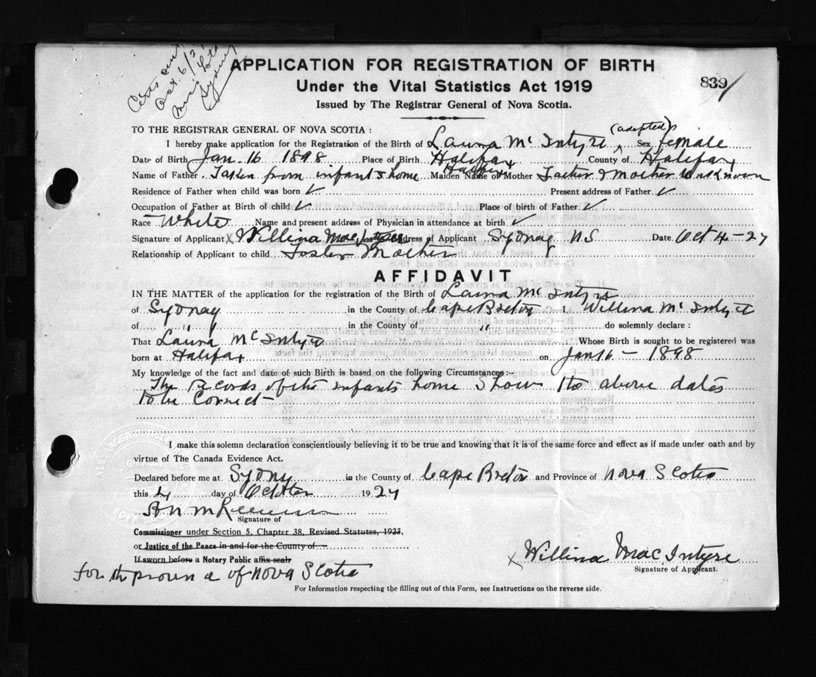 Oct. 6/27
Sydney
APPLICATION FOR REGISTRATION OF BIRTH
Under the Vital Statistics Act 1919
839
Issued by The Registrar General of Nova Scotia.
TO THE REGISTRAR GENERAL OF NOVA SCOTIA:
(adopted)
I hereby make application for the Registration of the Birth of Laura Mc Intyre Sex female
Date of Birth Jan. 16 1898 Place of Birth Halifax County of Halifax
Name of Father Taken from infants home Maiden Name of Mother Father & Mother unknown
Residence of Father when child was born ✓ Present address of Father ✓
Occupation of Father at Birth of child ✓ Place of birth of Father ✓
Race White Name and present address of Physician in attendance at birth ✓
Signature of Applicant x Willina MacIntyre Address of Applicant Sydney N.S Date Oct 4-27
Relationship of Applicant to child Foster Mother
AFFIDAVIT
IN THE MATTER of the application for the registration of the Birth of Laura Mc Intyre
of Sydney in the County of Cape Breton I, Willina Mc Intyre
of " in the County of " do solemnly declare:
That Laura McIntyre Whose Birth is sought to be registered was
born at Halifax on Jan 16 - 1898
My knowledge of the fact and date of such Birth is based on the following Circumstances:-
The records of the infants home show the above dates
to be correct-
I make this solemn declaration conscientiously believing it to be true and knowing that it is of the same force and effect as if made under oath and by
virtue of The Canada Evidence Act.
Declared before me at Sydney in the County of Cape Breton and Province of Nova Scotia
this 4 day of October 1927
Signature of
Commissioner under Section 5, Chapter 38, Revised Statutes, 1923,
or Justice of the Peace in and for the County of
If sworn before a Notary Public affix seal)
for the province of Nova Scotia
x Willina MacIntyre
Signature of Applicant.
For Information respecting the filling out of this Form, see Instructions on the reverse side.